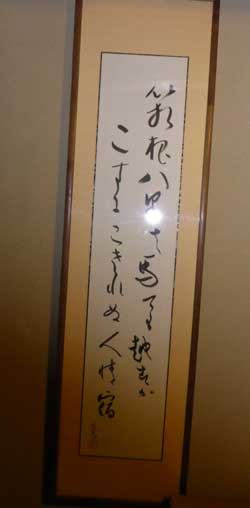 箱根八里は馬でも越すが
こすにこされぬ人情宿